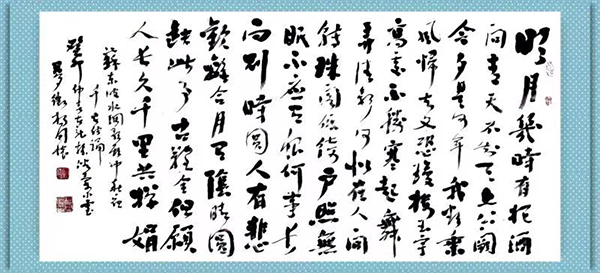 明月幾時有把酒
问青天不知天上宫阙
今夕是何年我欲乘
風歸去又恐瓊樓玉宇
高處不勝寒起舞
弄清影何似在人间
轉珠阁低绮户照無
眠不应有恨何事长
向别時圆人有悲
歡離合月有陰晴圆
缺此事古難全但願
人长久千里共婵娟
蘇東坡水调歌头中秋词
千古传诵